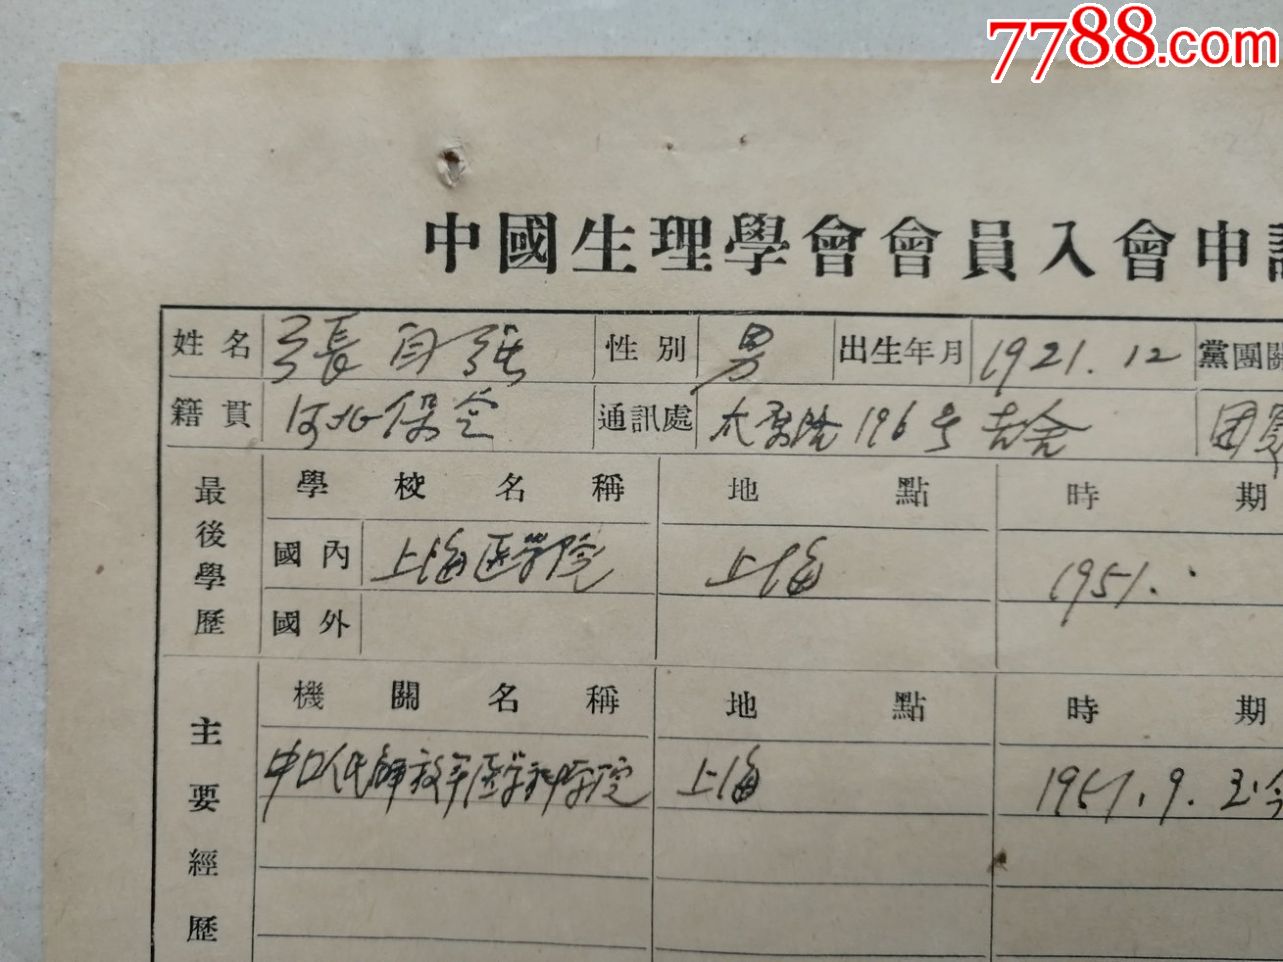 7788.com
中國生理學會會員入會申
姓名 張自強 性別 男 出生年月 1921.12 黨團關
籍貫 河北保定 通訊處 太原路196号 团
最後學歷 學校名稱 地點 時期
國內 上海医学院 上海 1951.
國外
主要經歷 機關名稱 地點 時期
中口人民解放军医学科学院 上海 1951.9.至今